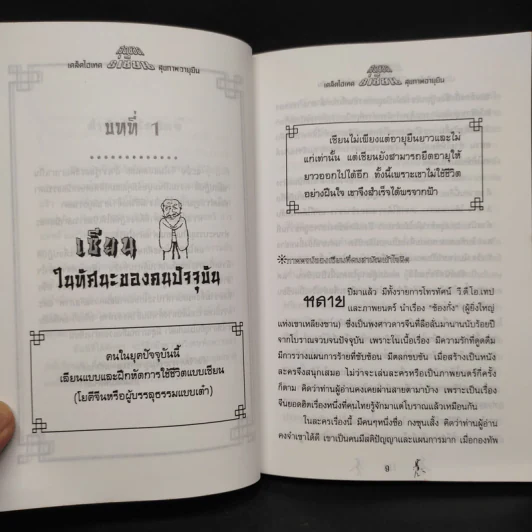 เคล็ดไอเทค สุขภาพอายุยืน
บทที่ 1
เซียน
ในทัศนะของคนปัจจุบัน
คนในยุคปัจจุบันนี้
เลียนแบบและฝึกหัดการใช้ชีวิตแบบเซียน
(โยคีจีนหรือผู้บรรลุธรรมแบบเต๋า)
สุขภาพอายุยืน
เซียนไม่เพียงแต่อายุยืนยาวและไม่
แก่เท่านั้น แต่เซียนยังสามารถยืดอายุให้
ยาวออกไปได้อีก ทั้งนี้เพราะเขาไม่ใช้ชีวิต
อย่างฝืนใจ เขาจึงสำเร็จได้พรจากฟ้า
หลาย ปีมาแล้ว มีทั้งรายการโทรทัศน์ วีดีโอเทป
และภาพยนตร์ นำเรื่อง "ซ้องกั๋ง" (ผู้ยิ่งใหญ่
แห่งเขาเหลียงซาน) ซึ่งเป็นพงศาวดารจีนที่ลือลั่นมานานนับร้อยปี
จากโบราณจวบจนปัจจุบัน เพราะในเนื้อเรื่อง มีความรักที่ดูดดื่ม
มีการวางแผนการร้ายที่ซับซ้อน มีตลกขบขัน เมื่อสร้างเป็นหนัง
ละครจึงสนุกเสมอ ไม่ว่าจะเล่นละครหรือเป็นภาพยนตร์กี่ครั้ง
ก็ตาม คิดว่าท่านผู้อ่านคงเคยผ่านสายตามาบ้าง เพราะเป็นเรื่อง
จีนยอดฮิตเรื่องหนึ่งที่คนไทยรู้จักมาแต่โบราณแล้วเหมือนกัน
ในละครเรื่องนี้ มีคนๆหนึ่งชื่อ กงซุนเสิ้ง คิดว่าท่านผู้อ่าน
คงจำเขาได้ดี เขาเป็นคนมีสติปัญญาและแผนการมาก เมื่อกองทัพ